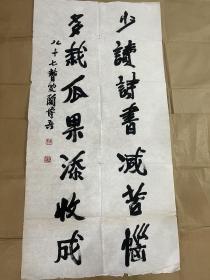 少讀詩書减苦惱
多栽瓜果添收成
九十七瞽叟蘭博吾